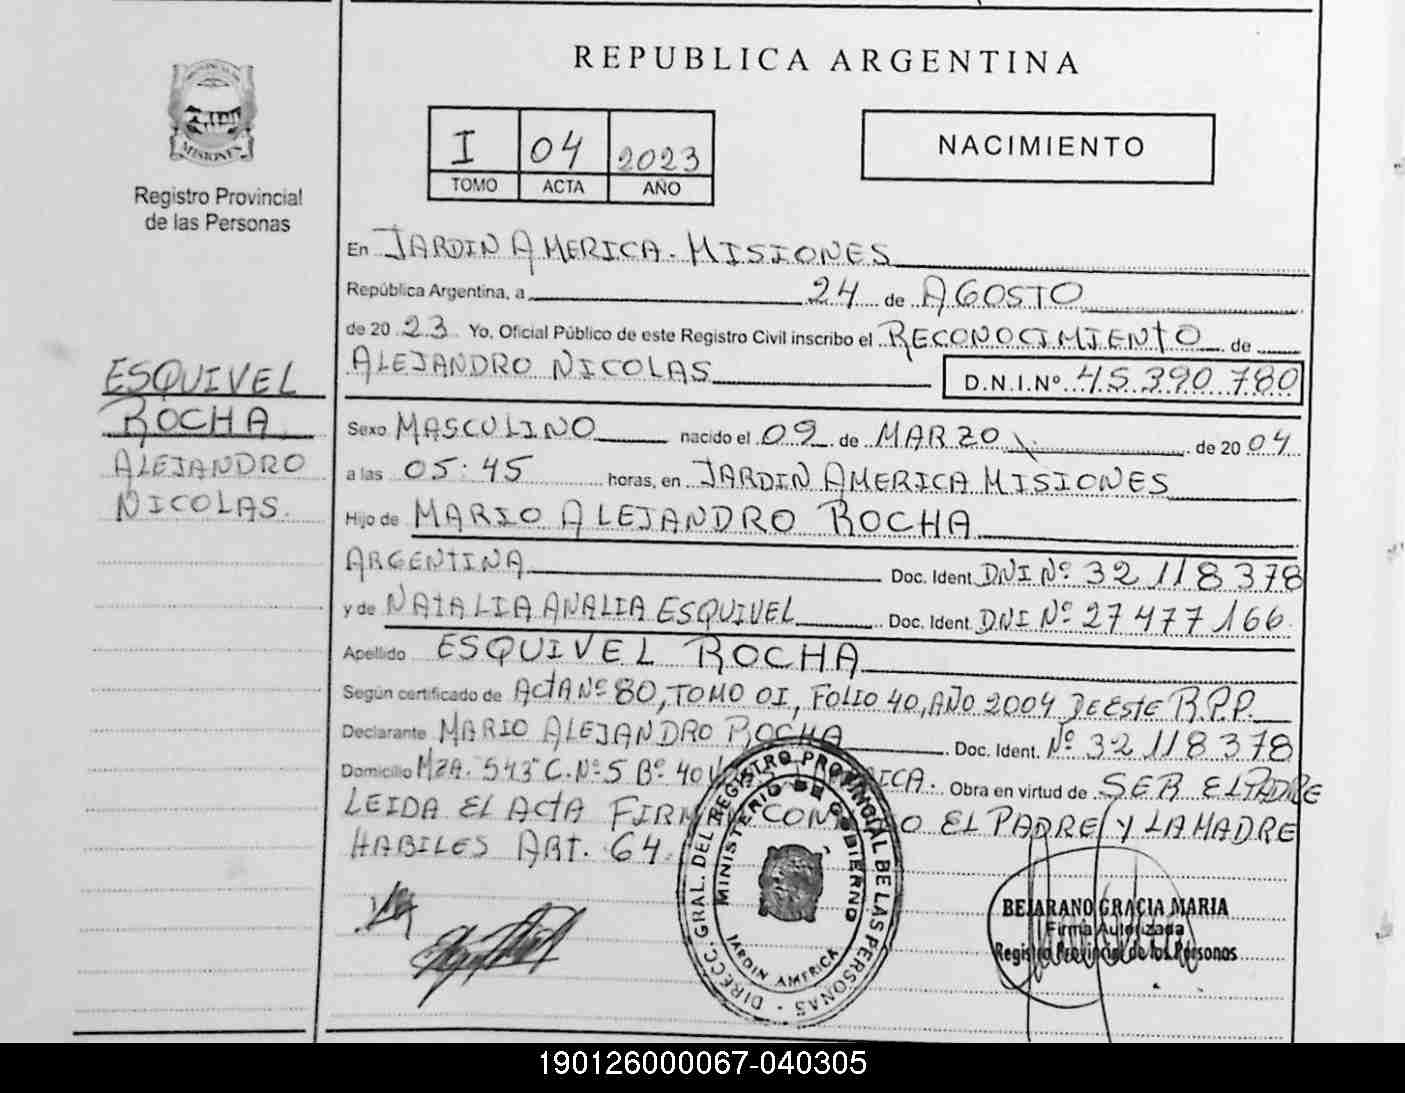 REPUBLICA ARGENTINA
MISIONES
Registro Provincial
de las Personas
I 04 2023
TOMO ACTA AÑO
NACIMIENTO
En JARDIN AMERICA. MISIONES
República Argentina, a 24 de AGOSTO
de 20 23 Yo, Oficial Público de este Registro Civil inscribo el RECONOCIMIENTO de
ALEJANDRO NICOLAS D.N.I.Nº 45.390.780
ESQUIVEL
ROCHA
ALEJANDRO
NICOLAS.
Sexo MASCULINO nacido el 09 de MARZO de 20 04
a las 05:45 horas, en JARDIN AMERICA MISIONES
Hijo de MARIO ALEJANDRO ROCHA
ARGENTINA Doc. Ident. DNI Nº 32.118.378
y de NATALIA ANALIA ESQUIVEL Doc. Ident. DNI Nº 27477166
Apellido ESQUIVEL ROCHA
Según certificado de ACTA Nº 80, TOMO 01, FOLIO 40, AÑO 2004 DE ESTE R.P.P.
Declarante MARIO ALEJANDRO ROCHA Doc. Ident. Nº 32.118.378
Domicilio MZA. 543 C. Nº 5 Bº 40 Obra en virtud de SER EL PADRE
LEIDA EL ACTA EL PADRE Y LA MADRE
HABILES ART. 64.
DIRECC. GRAL. DEL REGISTRO PROVINCIAL DE LAS PERSONAS
MINISTERIO DE GOBIERNO
JARDIN AMERICA
BEJARANO GRACIA MARIA
Firma Autorizada
Registro Provincial de las Personas
190126000067-040305